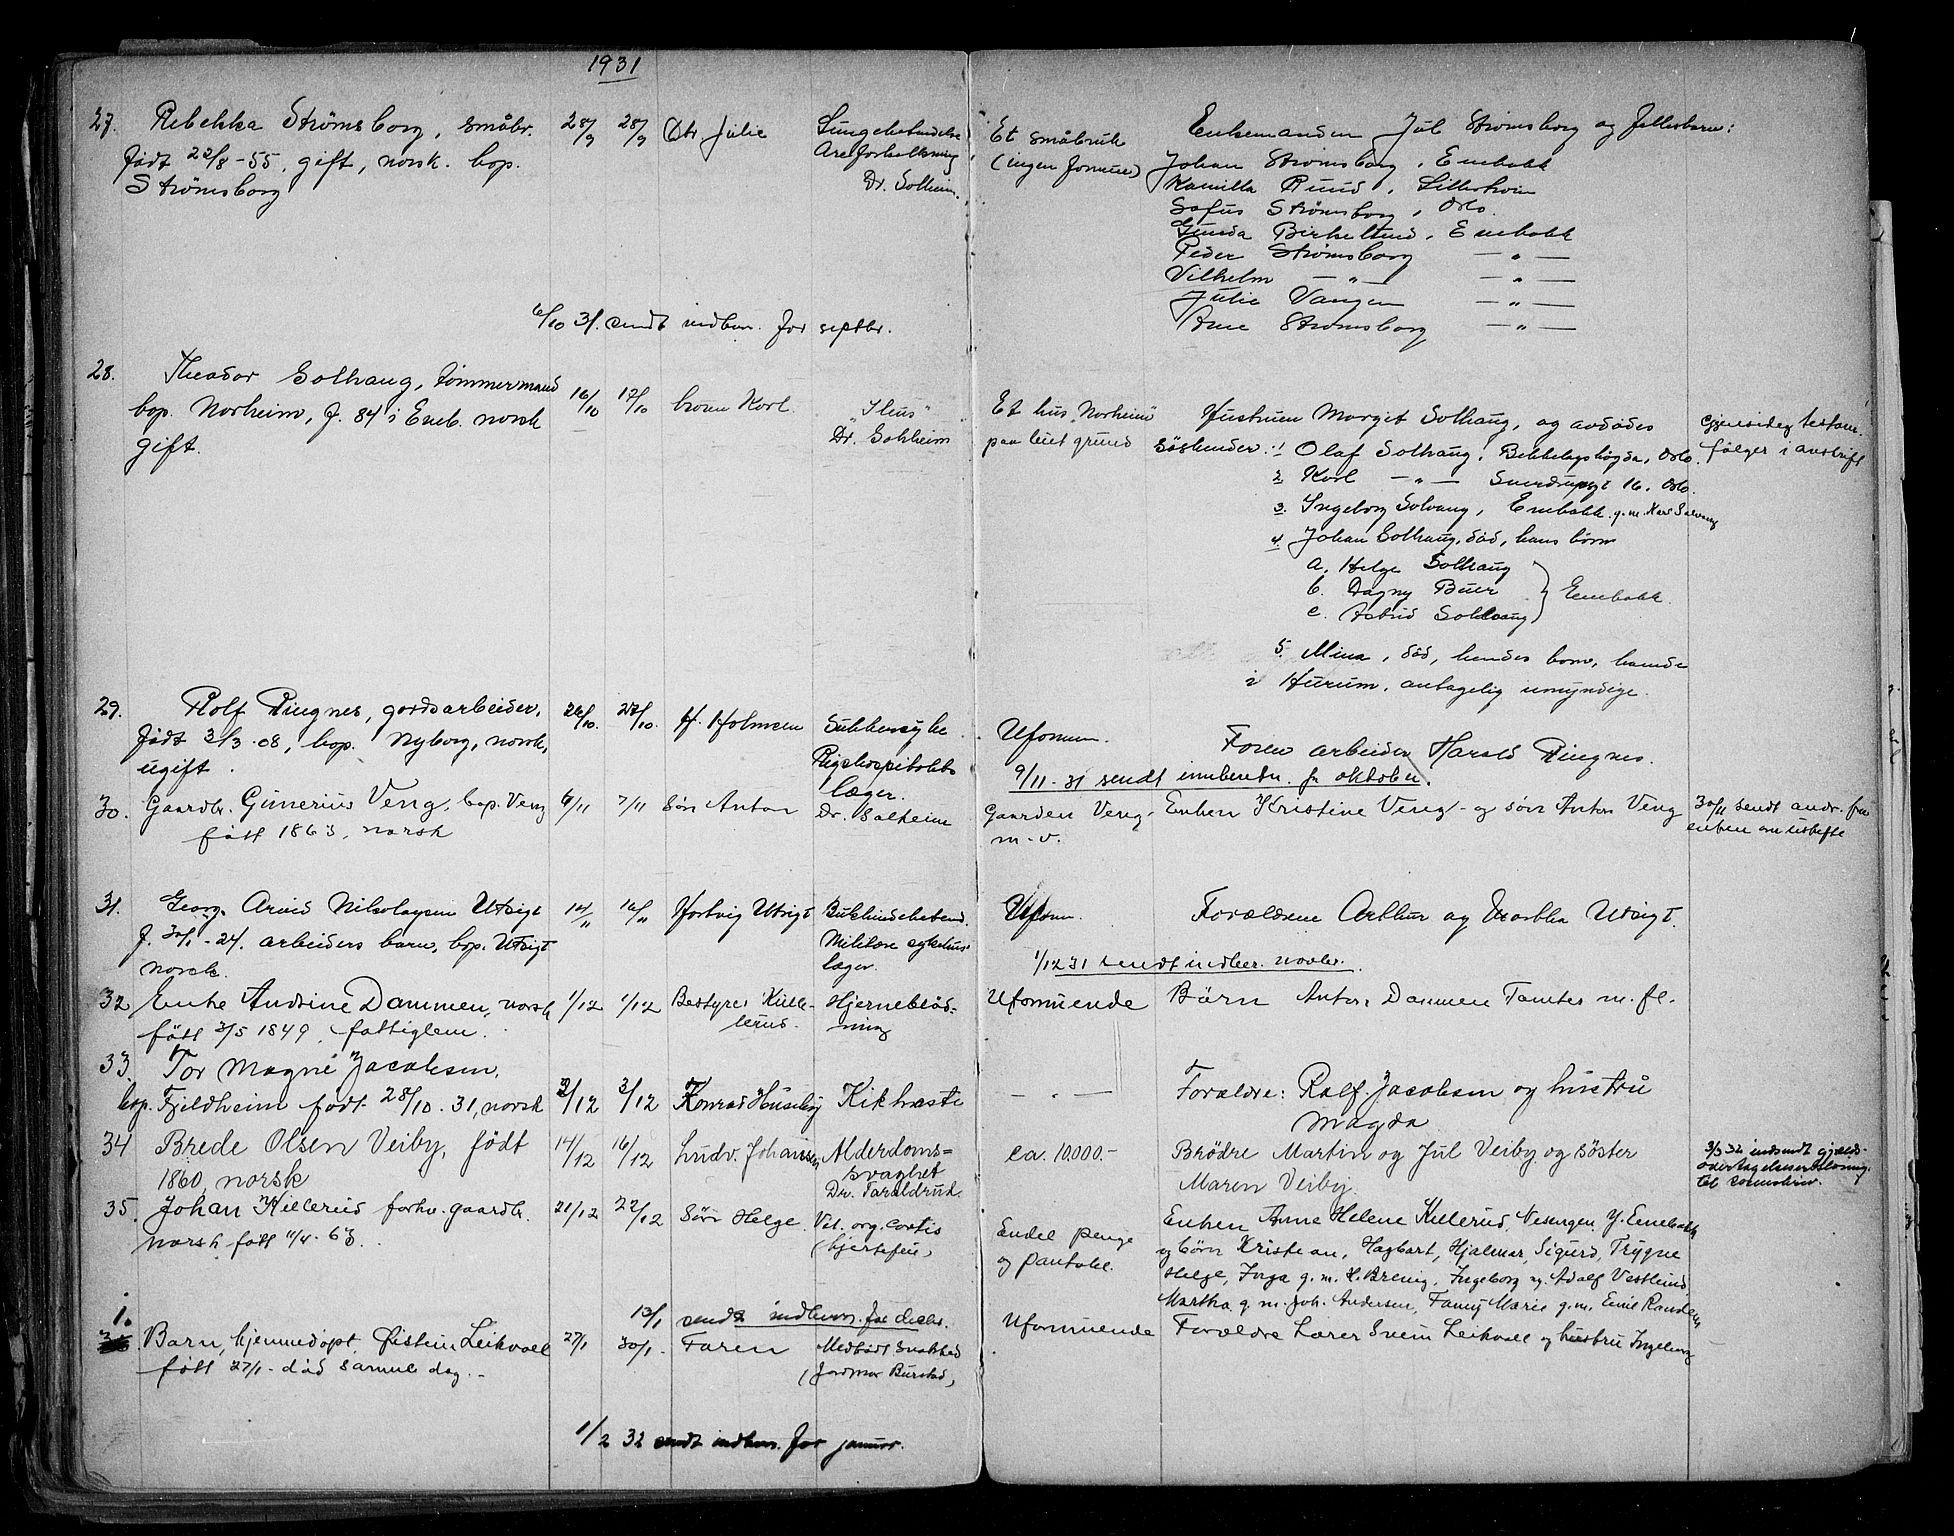 1931
27. Rebekka Strømsborg, småbr. 28/9 28/9 Dtr. Julie
født 22/8-55, gift, norsk. bop.
Strømsborg
Lungebetændelse
Areforkalkning
Dr. Solheim.
Et småbruk
(ingen formue)
Enkemanden Jul Strømsborg og fellesbarn:
Johan Strømsborg, Enebakk
Kamilla Ruud, Lillestrøm
Sofus Strømsborg, Oslo.
Gunda Birkelund, Enebakk
Peder Strømsborg — " —
Vilhelm — " — — " —
Julie Vangen — " —
Arne Strømsborg — " —
6/10 31. sendt indber. for septbr.
28. Theodor Solhaug, tømmermand 16/10 17/10 broren Karl.
bop. Norheim, f. 84 i Eneb. norsk
gift.
"Ileus"
Dr. Solheim
Et hus "Norheim"
paa leiet grund
Hustruen Margit Solhaug, og avdødes
søskender: 1 Olaf Solhaug, Bekkelagshøgda, Oslo.
2 Karl — " — Sverdrupsgt 16. Oslo.
3. Ingeborg Solvang, Enebakk. g.m. Solvang
4. Johan Solhaug, død, hans børn
a. Helge Solhaug
b. Dagny Buer } Enebakk.
c. Astrid Solhaug
5. Mina, død, hendes barn, boende
i Hurum, antagelig umyndige.
gjensidig testam.
følger i avskrift
29. Rolf Ringnes, gardsarbeider, 26/10 27/10. H. Holmsen
født 3/3-08, bop. Nyborg, norsk,
ugift.
Sukkersyke
Rigshospitalets
læger.
Uformu.
Faren arbeider Harald Ringnes.
9/11-31 sendt innberetn. for oktober.
30. Gaardbr. Gunerius Veng, bop. Veng 6/11 7/11 Søn Anton Dr. Solheim
født 1863, norsk
Gaarden Veng
m. v.
Enken Kristine Veng og søn Anton Veng
30/11 sendt andr. fra
enken om uskifte
31. Georg Arvid Nikolaysen Utsigt 14/11 16/11 Hartvig Utsigt
f. 30/1-24. arbeiders barn, bop. Utsigt
norsk.
Bukhindebetend.
Militære sykehus'
læger.
Uformu.
Forældrene Arthur og Martha Utsigt.
1/12 31 sendt indber. novbr.
32 Enke Andrine Dammen, norsk 1/12 1/12 Bestyrer Kille-
lerud.
født 3/5 1849, fattiglem.
Hjerneblød-
ning
Uformuende Børn Anton Dammen Tamter m. fl.
33. Tor Magne Jacobsen,
bop. Fjeldheim født 28/10.31, norsk 2/12 3/12 Konrad Huseby Kikhoste
— " — Forældre: Rolf Jacobsen og hustru
Magda
34 Brede Olsen Veiby, født 14/12 16/12 Ludv. Johansen
1860, norsk
Alderdoms=
svaghet
Dr. Taraldrud.
ca. 10.000.- Brødre Martin og Jul Veiby og søster
Maren Veiby.
3/3 32 indsendt gjælds-
overtagelseserklæring
til sorenskriv.
35. Johan Killerud forhv. gaardbr. 21/12 22/12 Søn Helge
norsk, født 11/4-63.
Vit. org. cordis
(hjertefeil)
Endel penge
og pantobl.
Enken Anne Helene Killerud, Nesengen, Y. Enebakk
og børn Kristian, Hagbart, Hjalmar, Sigurd, Trygve
Helge, Inga g.m. H. Brevig, Ingeborg og Adolf Vestlund
Martha g.m. Joh. Andersen, Fanny Marie g.m. Emil Randem
13/1 sendt indber. for decbr.
1. Barn, hjemmedøpt, Øistein Leikvoll 27/1 30/1 Faren
født 27/1- død samme dag.
Medfødt svakhed
(Jordmor Burstad)
Uformuende Forældre Lærer Svein Leikvoll og hustru Ingeborg
1/2 32 sendt indber. for januar.